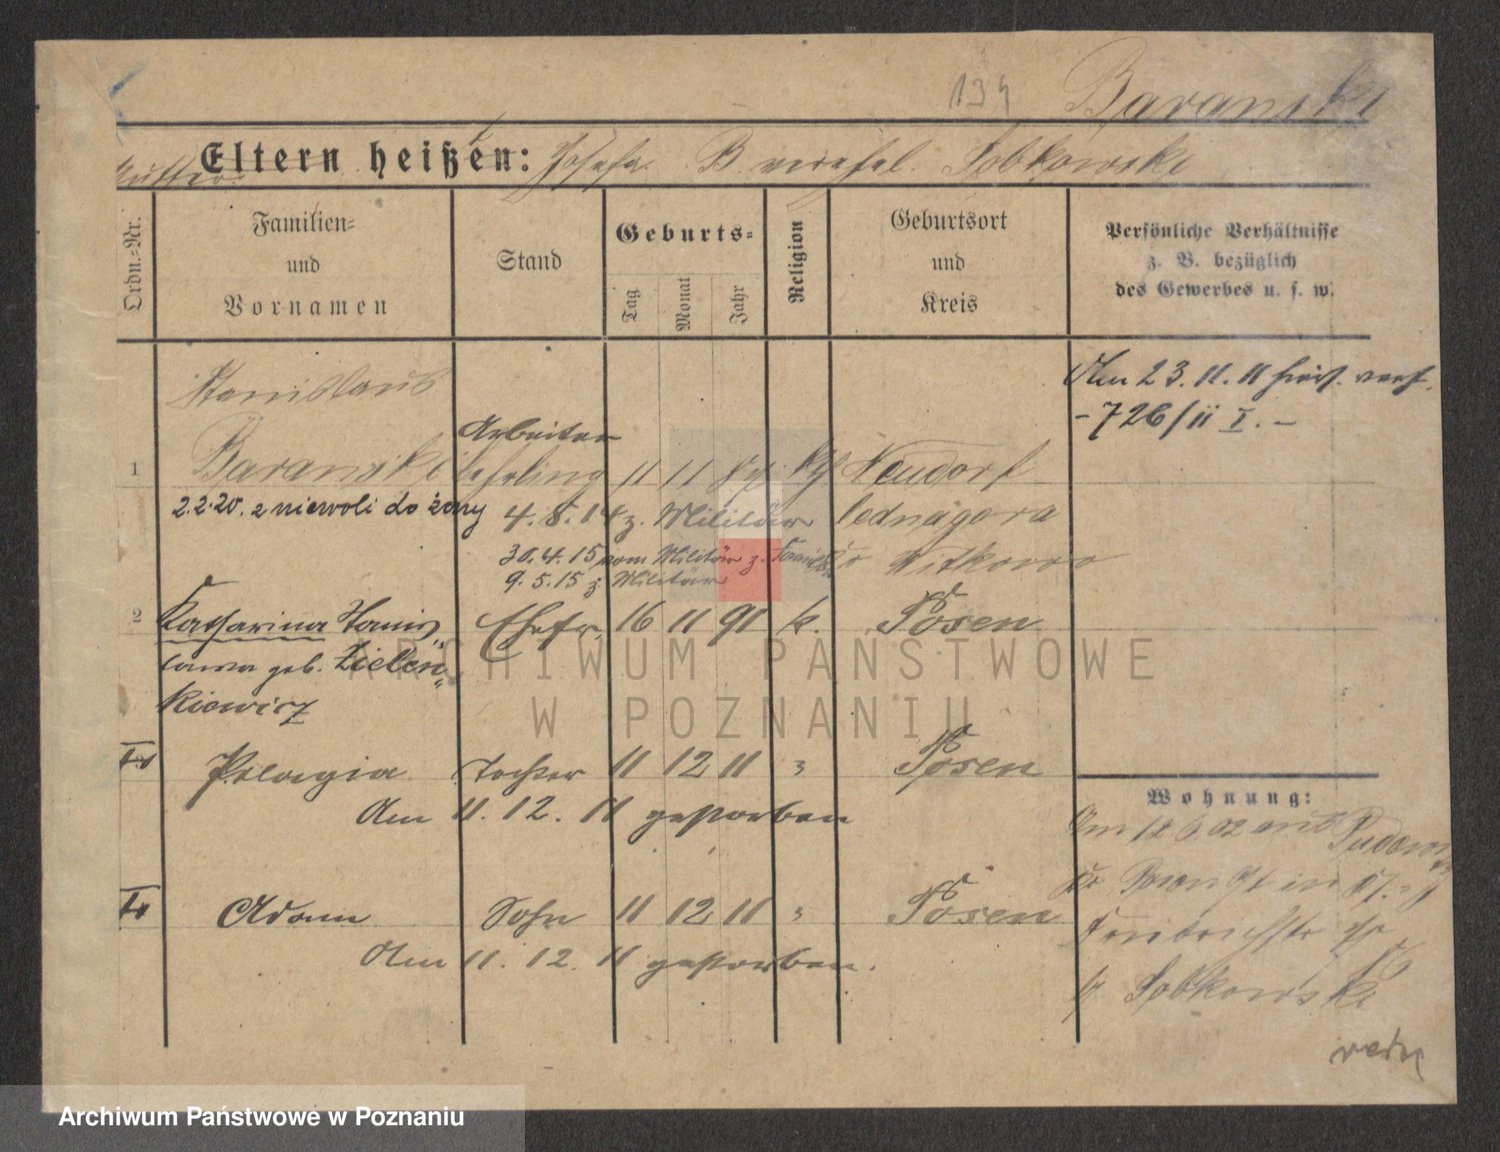 134 Baranski
Mutter Eltern heißen: Josefa B verehel Sobkowski
Ordn.-Nr.
Familien-
und
Vornamen
Stand
Geburts-
Tag
Monat
Jahr
Religion
Geburtsort
und
Kreis
Persönliche Verhältnisse
z. B. bezüglich
des Gewerbes u. s. w.
Am 23. 11. 11
- 726/11 I. -
Stanislaus
Arbeiter
1 Baranski Lehrling 11 11 kth Neudorf
2.2.20. z niewoli do żony 4. 8. 14 z. Militär
30. 4. 15 vom Militär z. Witkowo
9. 5. 15 z. Militär
2 Katharina Stanis- Ehefr. 16 11 91 k. Posen
lawa geb. Zielen-
kiewicz
Pelagia Tochter 11 12 11 " Posen
Am 11. 12. 11 gestorben
Adam Sohn 11 12 11 " Posen
Am 11. 12. 11 gestorben.
Wohnung:
Am 12 6. 02 aus
in
b/ Sobkowski
ARCHIWUM PAŃSTWOWE
W POZNANIU
Archiwum Państwowe w Poznaniu